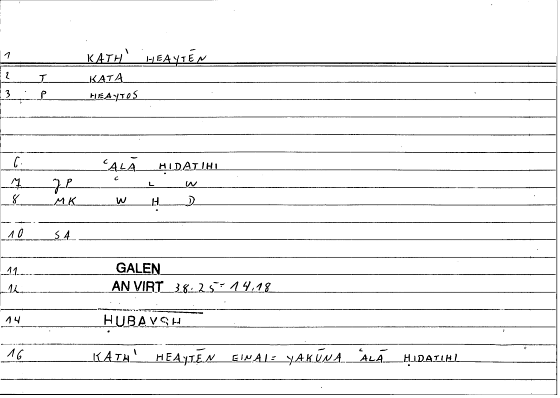 1 KATH' HEAYTĒN
2 T KATA
3 P HEAYTOS
6. ʿALĀ ḤIDATIHI
7 JP ʿ L W
8 MK W Ḥ D
10 SA
11 GALEN
12 AN VIRT 38.25 = 14.18
14 ḤUBAYSH
16 KATH' HEAYTĒN EINAI = YAKŪNA ʿALĀ ḤIDATIHI